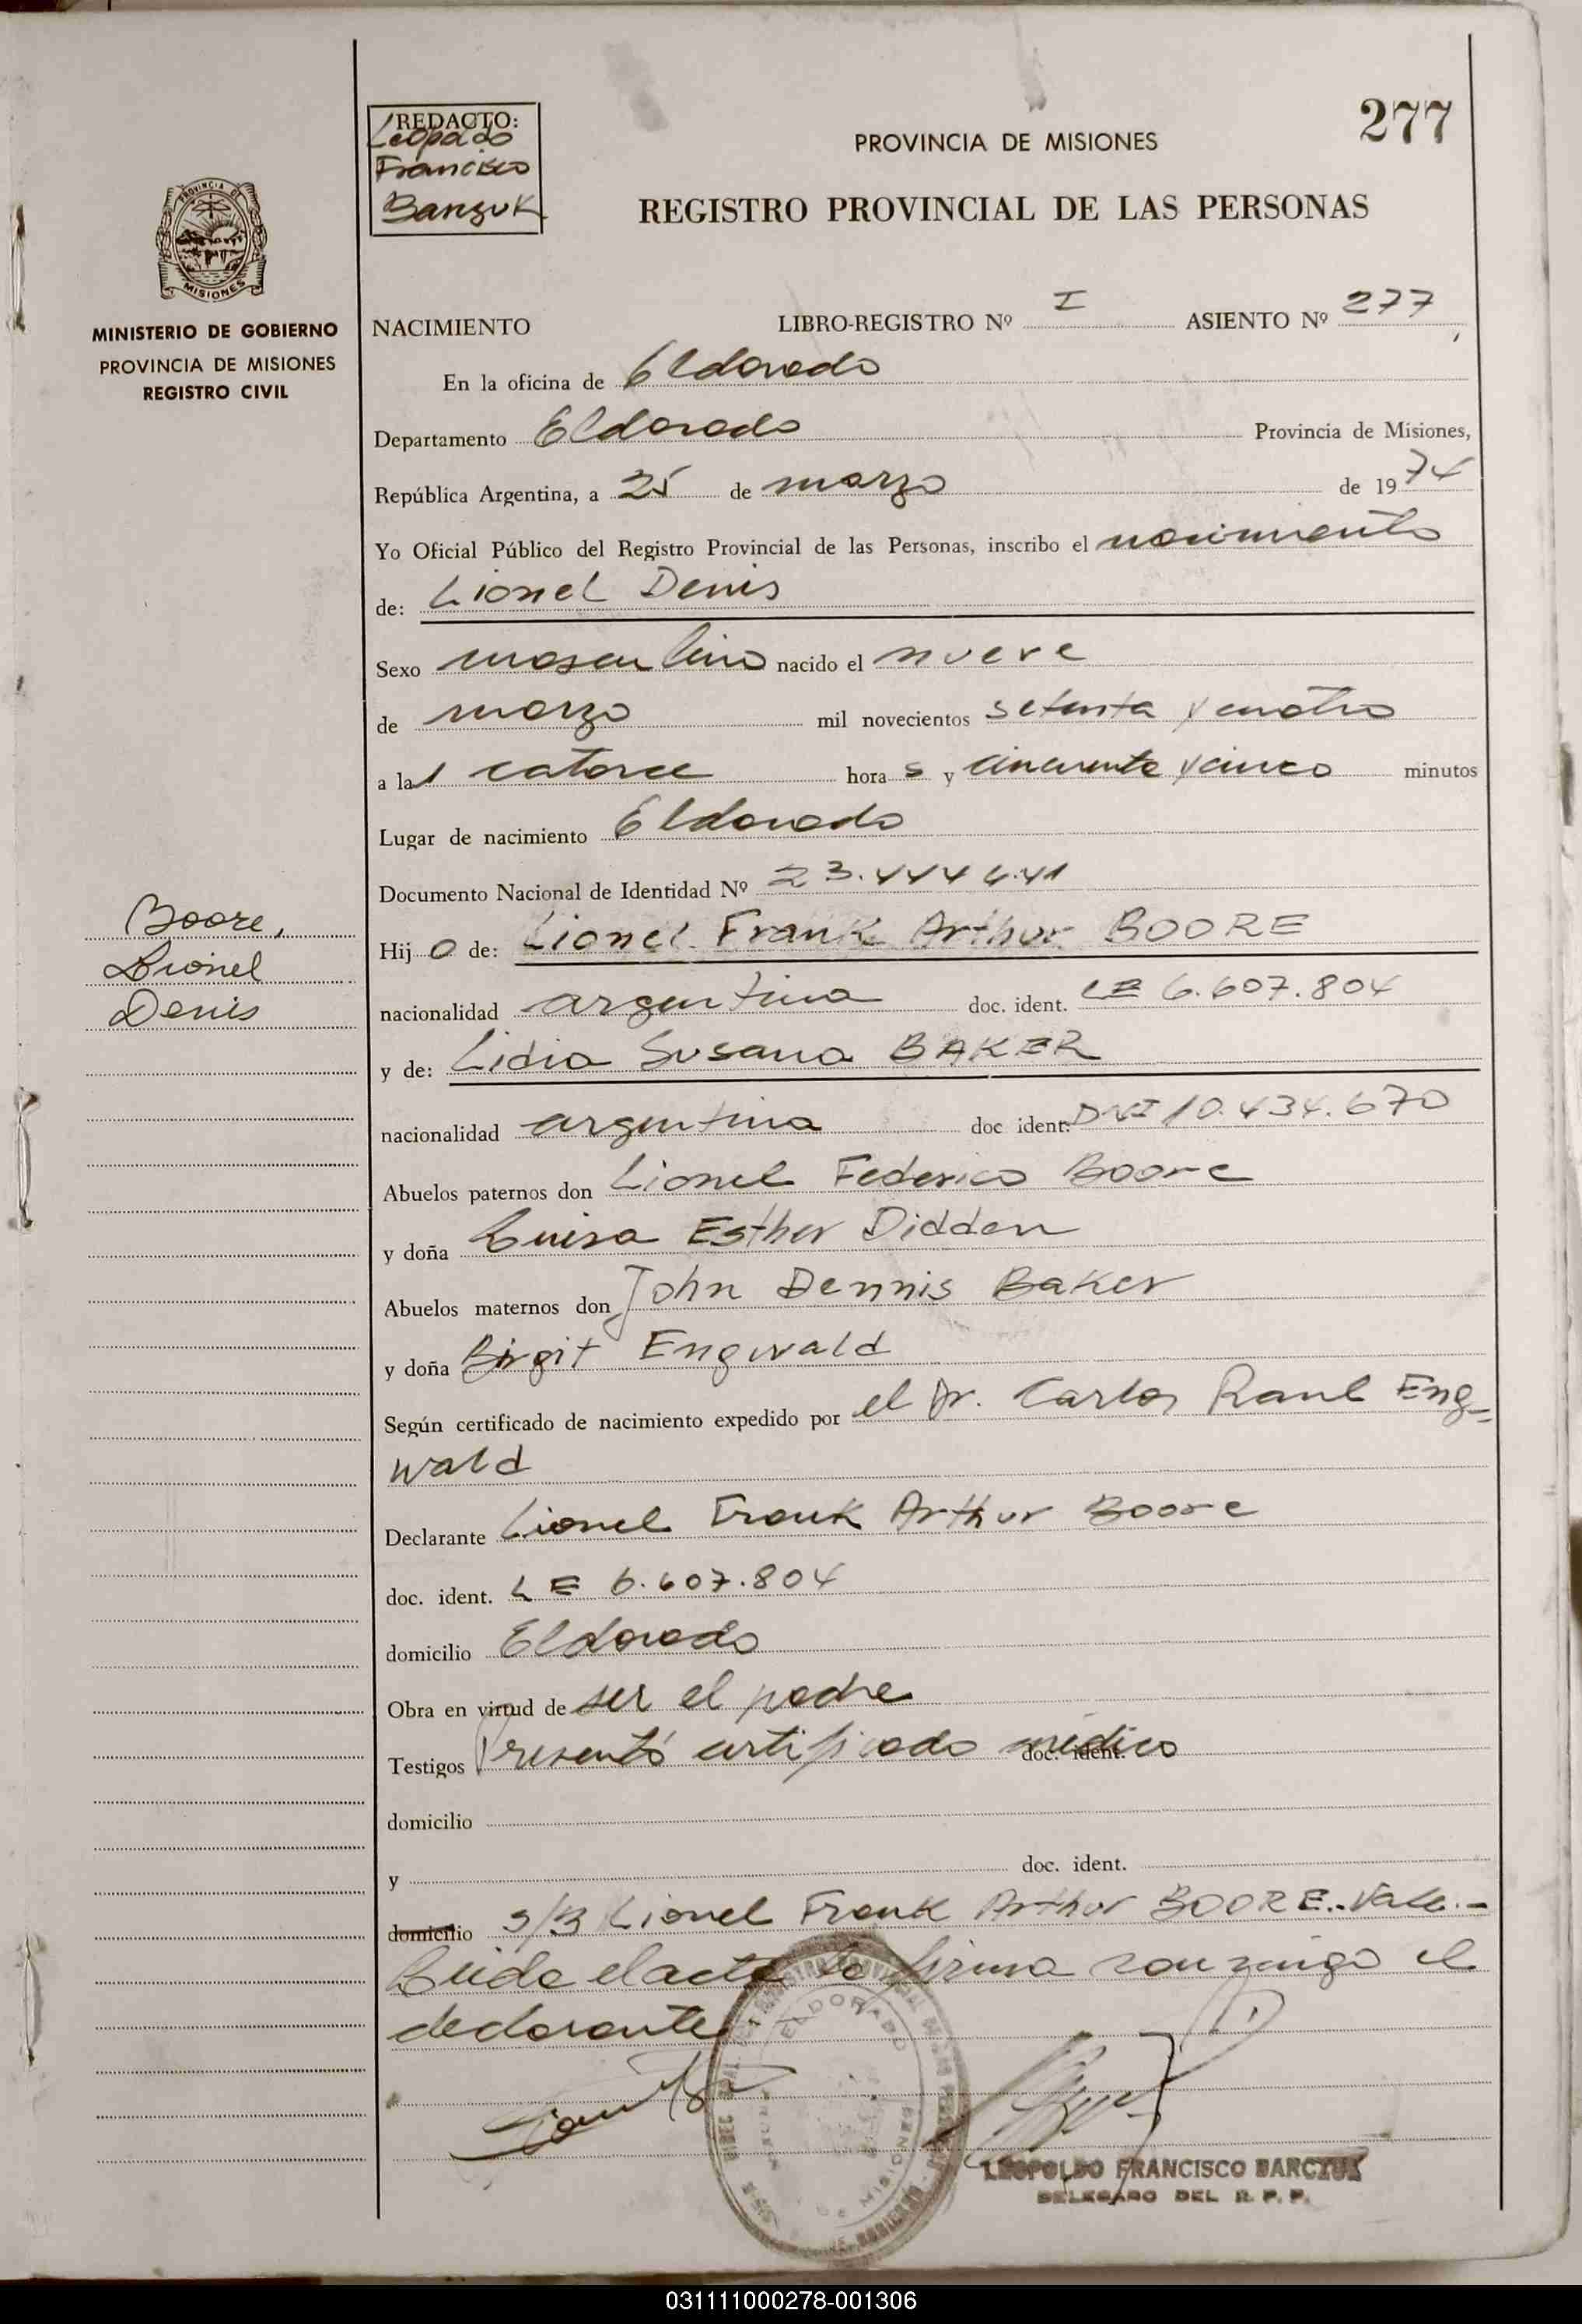 REDACTO:
Leopoldo
Francisco
PROVINCIA DE MISIONES
277
REGISTRO PROVINCIAL DE LAS PERSONAS
PROVINCIA DE
MISIONES
MINISTERIO DE GOBIERNO
PROVINCIA DE MISIONES
REGISTRO CIVIL
NACIMIENTO LIBRO-REGISTRO Nº I ASIENTO Nº 277
En la oficina de Eldorado
Departamento Eldorado Provincia de Misiones,
República Argentina, a 25 de marzo de 1974
Yo Oficial Público del Registro Provincial de las Personas, inscribo el nacimiento
de: Lionel Denis
Sexo masculino nacido el nueve
de marzo mil novecientos setenta y cuatro
a las catorce horas y cincuenta y cinco minutos
Lugar de nacimiento Eldorado
Documento Nacional de Identidad Nº 23.444.441
Boore,
Lionel
Denis
Hijo de: Lionel Frank Arthur BOORE
nacionalidad argentina doc. ident. LE 6.607.804
y de: Lidia Susana BAKER
nacionalidad argentina doc ident. DNI 10.434.670
Abuelos paternos don Lionel Federico Boore
y doña Luisa Esther Didden
Abuelos maternos don John Dennis Baker
y doña Birgit Engwald
Según certificado de nacimiento expedido por el Dr. Carlos Raul Eng-
wald
Declarante Lionel Frank Arthur Boore
doc. ident. LE 6.607.804
domicilio Eldorado
Obra en virtud de ser el padre
Testigos Presentó certificado médico doc. ident.
domicilio
y doc. ident.
domicilio S/B Lionel Frank Arthur BOORE.-Vale.-
Leida el acta la firma conmigo el
declarante.
ELDORADO
LEOPOLDO FRANCISCO BARCZUK
DELEGADO DEL R. P. P.
031111000278-001306